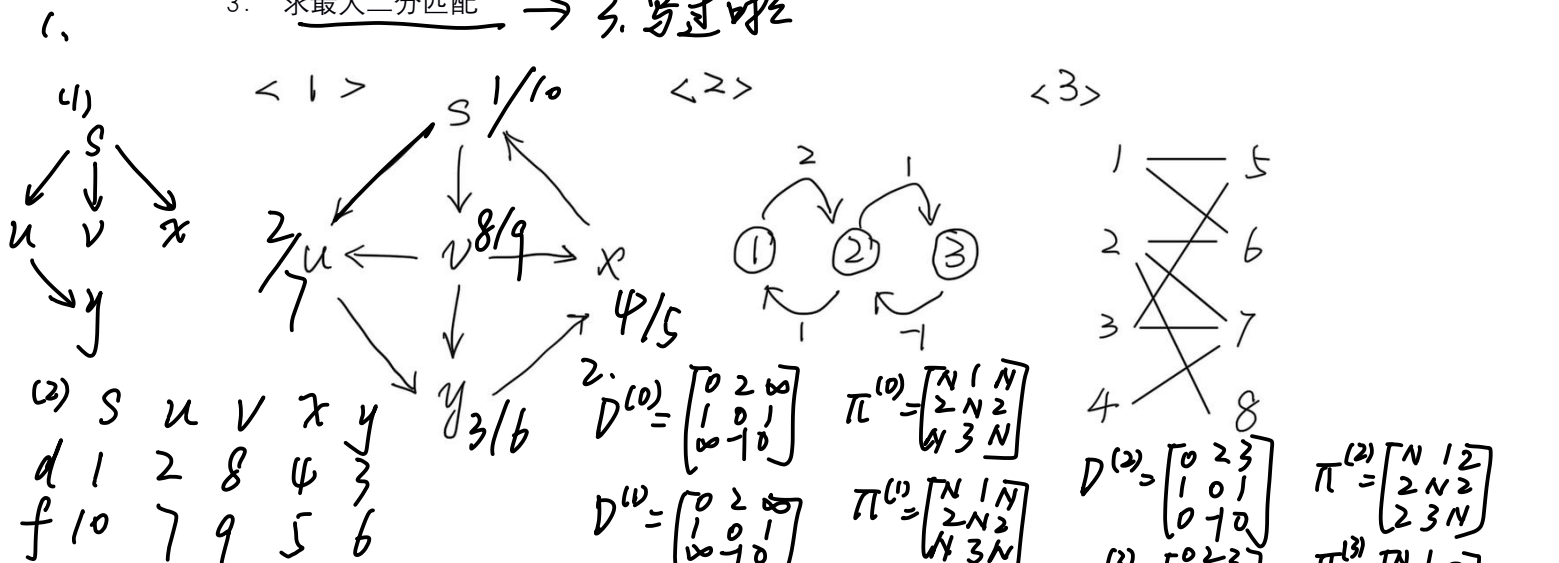 3. 求最大二分匹配 → 3. 写过时
1.
<1> <2> <3>
(1)
S
u v x
y
S 1/10
2/7 u v 8/9 x 4/5
y 3/6
2 1
① ② ③
1 -1
1 5
2 6
3 7
4 8
(2) S u v x y
d 1 2 8 4 3
f 10 7 9 5 6
2.
D(0) = [0 2 ∞
1 0 1
∞ -1 0]
π(0) = [N 1 N
2 N 2
N 3 N]
D(1) = [0 2 ∞
1 0 1
∞ -1 0
π(1) = [N 1 N
2 N 2
N 3 N
D(2) = [0 2 3
1 0 1
0 -1 0]
π(2) = [N 1 2
2 N 2
2 3 N]
π(3)